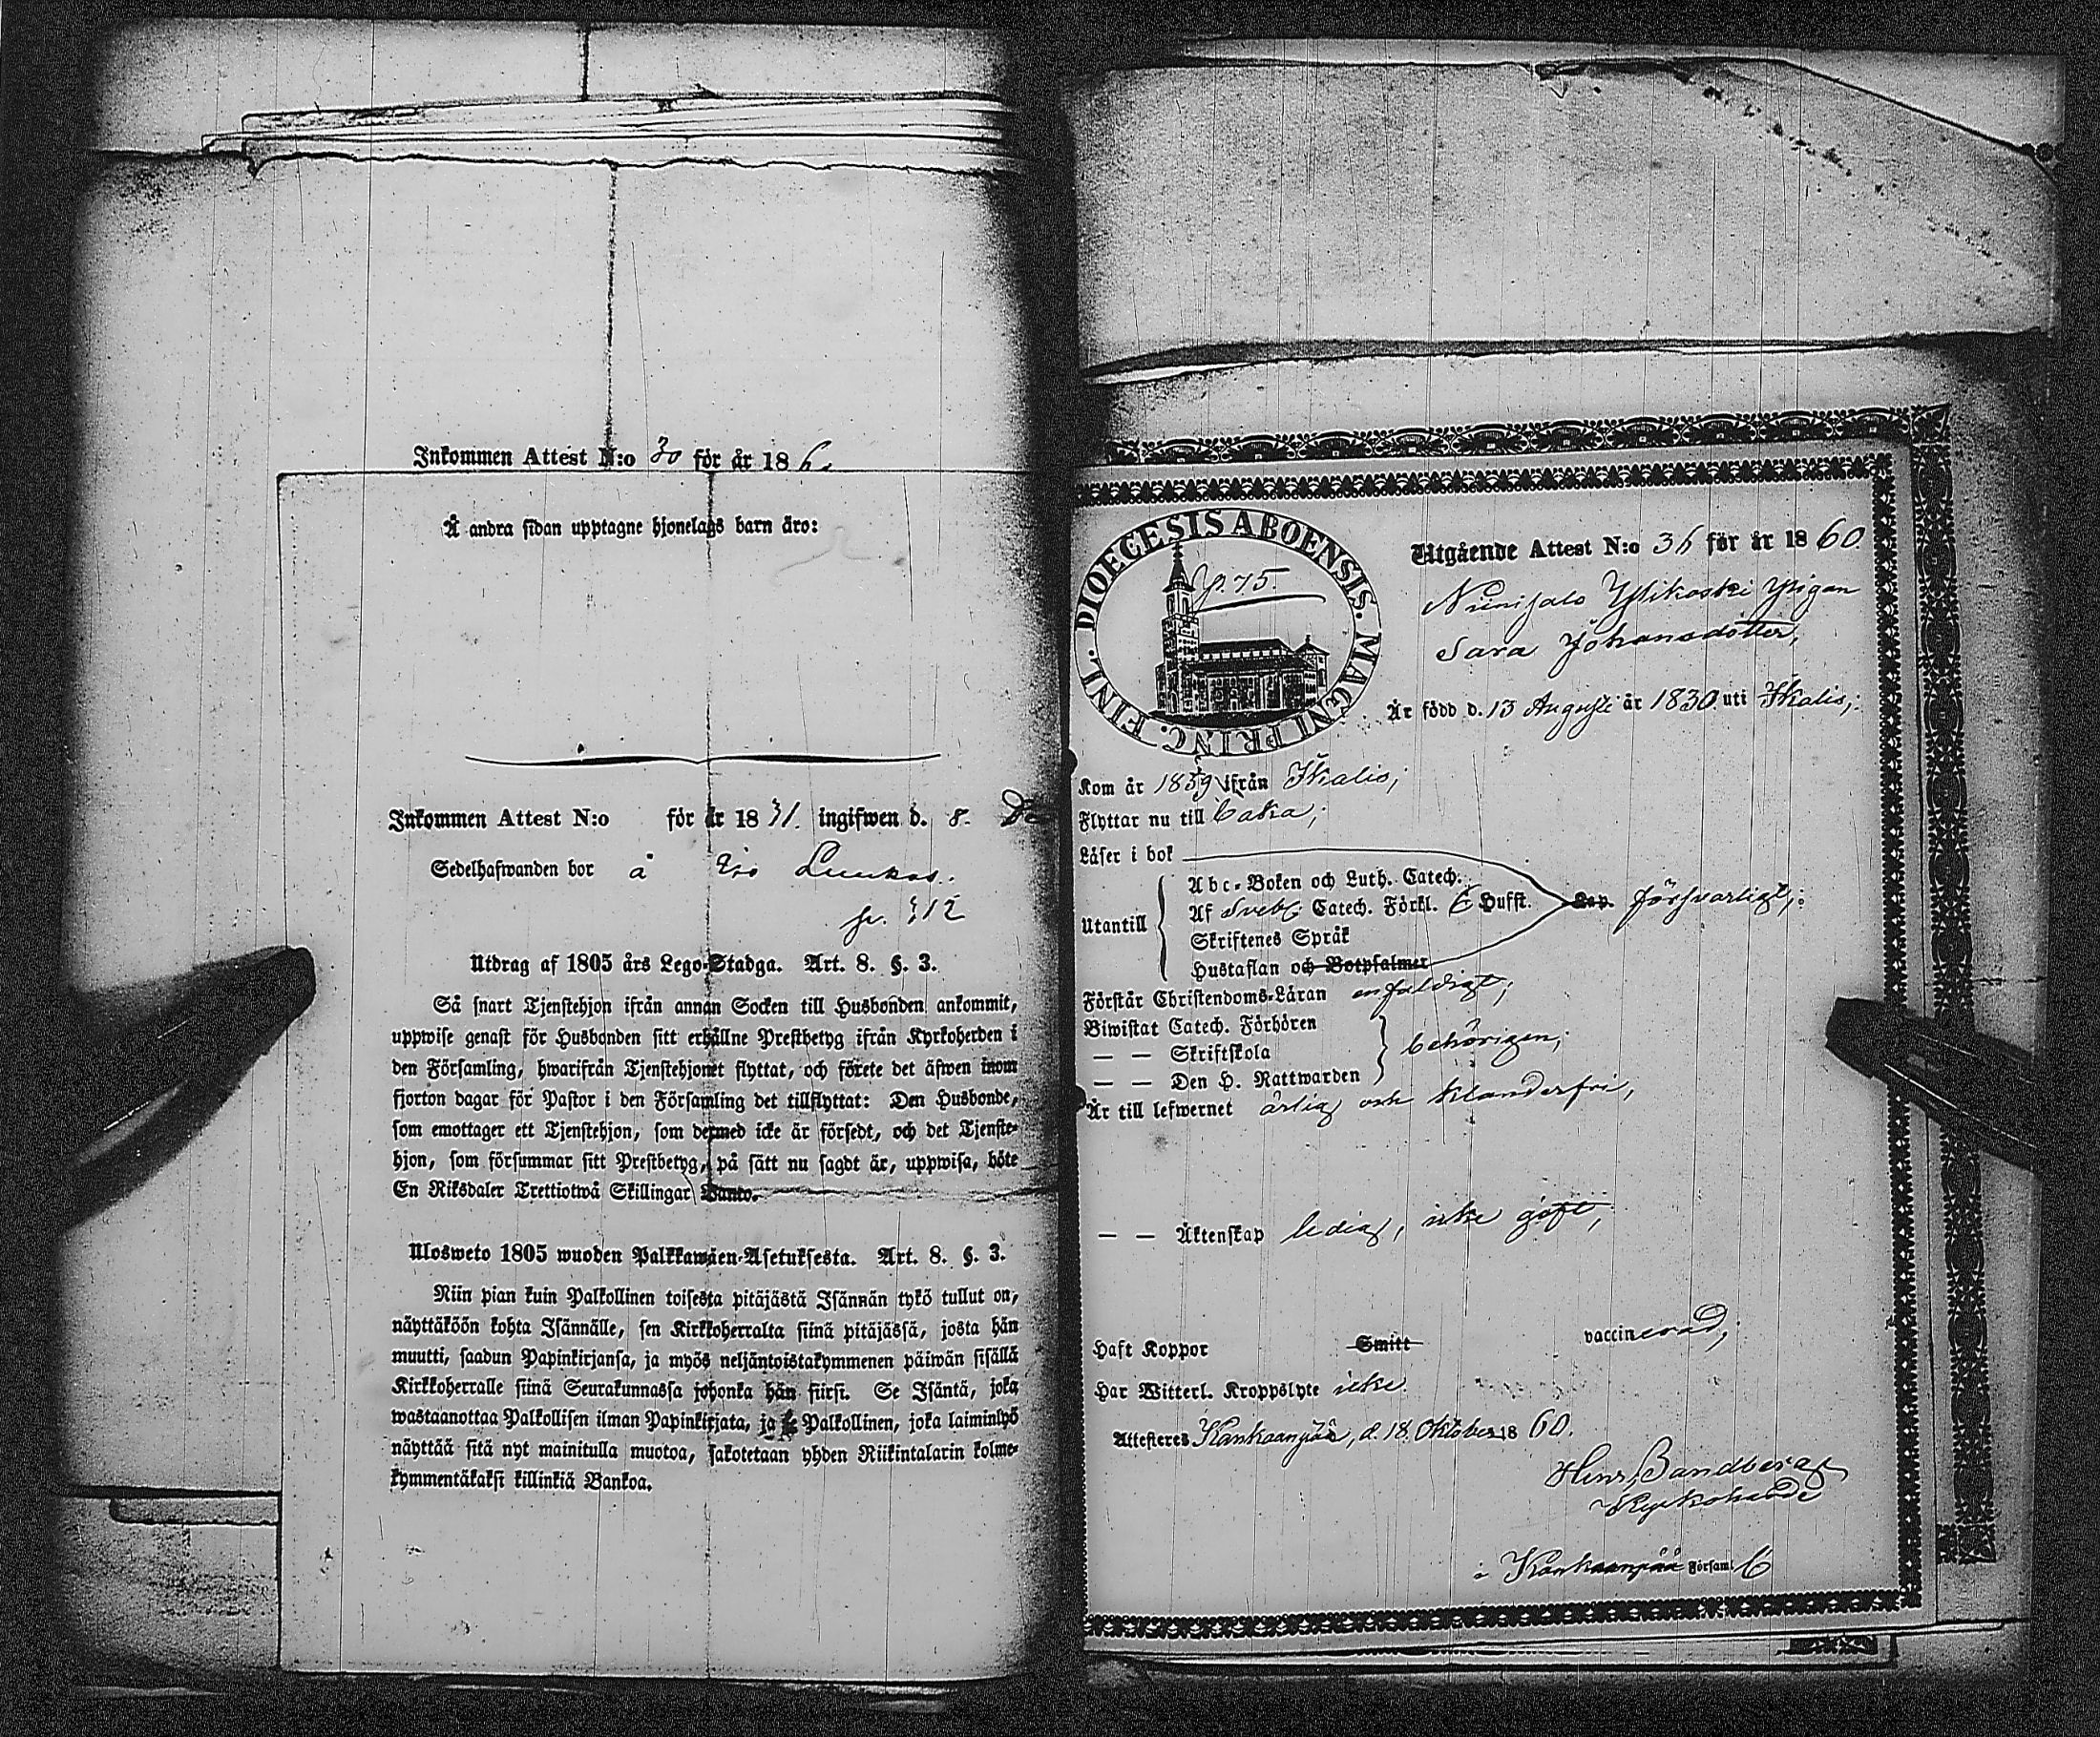 Inkommen Attest N:o 30 för år 18
Å andra sidan upptagne hjonelags barn äro:
Inkommen Attest N:o för år 18 31. ingifwen d. 8.
Sedelhafwanden bor å
312
Utdrag af 1805 års Lego-Stadga. Art. 8. §. 3.
Så snart Tjenstehjon ifrån annan Socken till Husbonden ankommit,
uppwise genast för Husbonden sitt erhållne Prestbetyg ifrån Kyrkoherden i
den Församling, hwarifrån Tjenstehjonet flyttat, och förete det äfwen inom
fjorton dagar för Pastor i den Församling det tillflyttat: Den Husbonde,
som emottager ett Tjenstehjon, som dermed icke är försedt, och det Tjenste-
hjon, som försummar sitt Prestbetyg, på sätt nu sagdt är, uppwisa, böte
En Riksdaler Trettiotwå Skillingar Banko.
Ulosweto 1805 wuoden Palkkawäen-Asetuksesta. Art. 8. §. 3.
Niin pian kuin Palkollinen toisesta pitäjästä Isännän tykö tullut on,
näyttäköön kohta Isännälle, sen Kirkkoherralta siinä pitäjässä, josta hän
muutti, saadun Papinkirjansa, ja myös neljäntoistakymmenen päiwän sisällä
Kirkkoherralle siinä Seurakunnassa johonka hän siirsi. Se Isäntä, joka
wastaanottaa Palkollisen ilman Papinkirjata, ja Palkollinen, joka laiminlyö
näyttää sitä nyt mainitulla muotoa, sakotetaan yhden Riikintalarin kolme-
kymmentäkaksi killinkiä Bankoa.
DIOECESIS ABOENSIS. MAGNI PRINC. FINL.
p. 75.
Utgående Attest N:o 36 för år 1860.
Niinisalo Ylikoski Pigan
Sara Johansdotter,
Är född d. 13 Augusti år 1830 uti Ikalis;
Kom år 1859 ifrån Ikalis;
Flyttar nu till
Läser i bok
Utantill
Abc-Boken och Luth. Catech.
Af Sveb. Catech. Förkl. Hufst. försvarligt;
Skriftenes Språk
Hustaflan och Botpsalmer
Förstår Christendoms-Läran enfaldigt;
Biwistat Catech. Förhören
— — Skriftskola behörigen;
— — Den H. Nattwarden
Är till lefwernet ärlig och klanderfri,
— — Äktenskap ledig, icke gift,
Haft Koppor Smitt vaccinerad,
Har Witterl. Kroppslyte icke.
Attesteres Kankaanpää, d. 18. Oktober 1860.
Henr. Sandberg
Kyrkoherde
i Kankaanpää Församl.